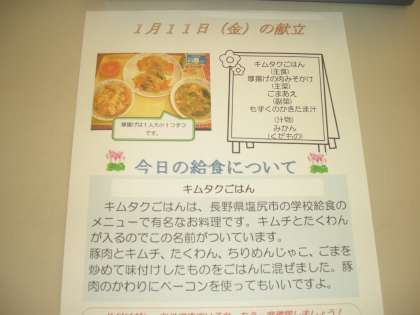 1月11日(金)の献立
キムタクごはん
(主食)
厚揚げの肉みそかけ
(主菜)
ごまあえ
(副菜)
もずくのかきたま汁
(汁物)
みかん
(くだもの)
厚揚げは1人
です。
今日の給食について
キムタクごはん
キムタクごはんは、長野県塩尻市の学校給食の
メニューで有名なお料理です。キムチとたくわん
が入るのでこの名前がついています。
豚肉とキムチ、たくわん、ちりめんじゃこ、ごまを
炒めて味付けしたものをごはんに混ぜました。豚
肉のかわりにベーコンを使ってもいいですよ。